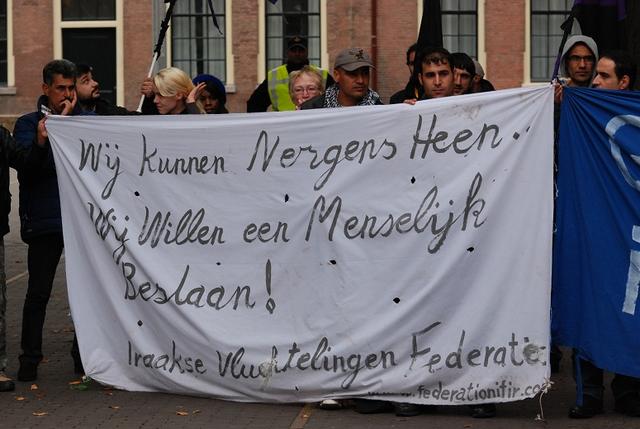 Wij Kunnen Nergens Heen..
Wij Willen een Menselijk
Beslaan!
Iraakse Vluchtelingen Federatie.
www.federationifir.co